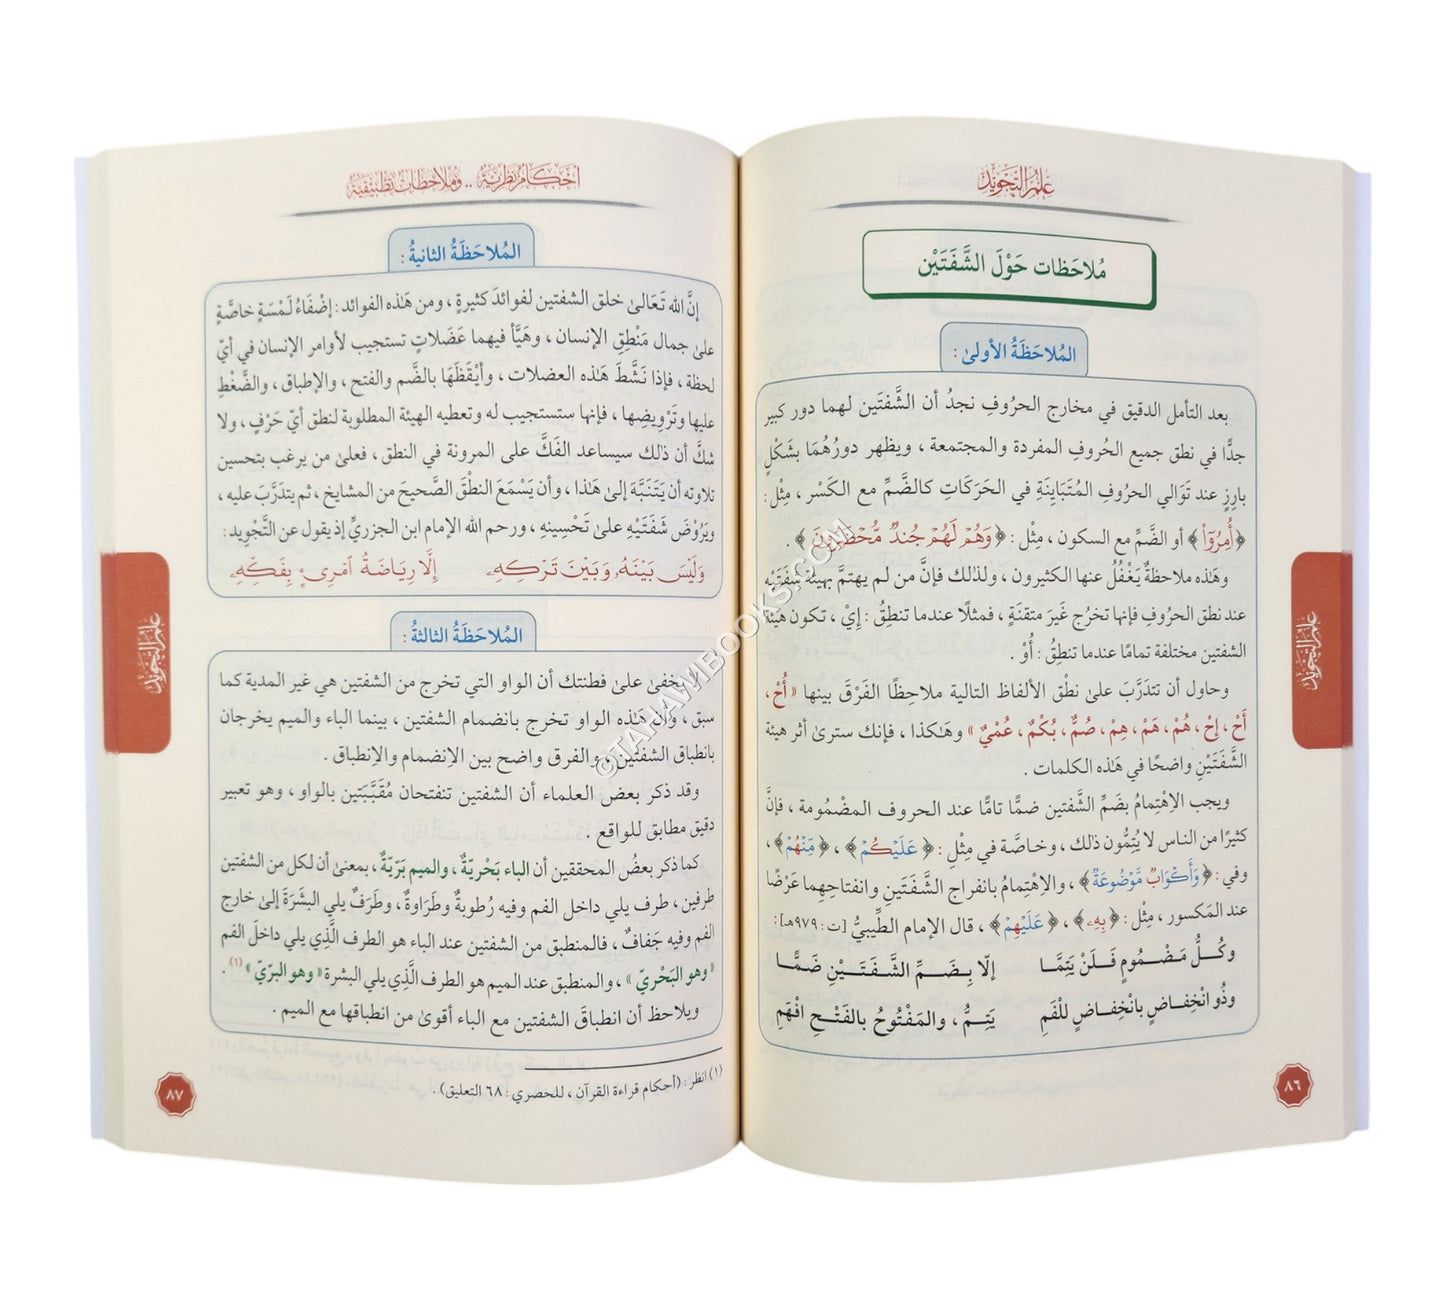 علم التجويد
مُلاحَظات حَوْلَ الشَّفَتَيْن
المُلاحَظَةُ الأولىٰ :
بعد التأمل الدقيق في مخارج الحرُوفِ نجدُ أن الشَّفتَين لهما دور كبير
جدًّا في نطق جميع الحُروفِ المفردة والمجتمعة ، ويظهر دورُهُمَا بشَكْلٍ
بارِزٍ عند تَوَالي الحروفِ المُتَبَاينَةِ في الحَرَكَاتِ كالضَّمِّ مع الكَسْر ، مِثْل :
﴿أُمِرُوٓاْ﴾ أو الضَّمِّ مع السكون ، مِثْل : ﴿وَهُمۡ لَهُمۡ جُندٞ مُّحۡضَرُونَ﴾ .
وهَٰذه ملاحظةٌ يَغْفُلُ عنها الكثيرون ، ولذٰلك فإنَّ من لم يهتمَّ بهيئة شفَتَيْه
عند نطق الحرُوف فإنها تخرُج غَيرَ متقنَةٍ ، فمثلًا عندما تنطِقُ : إيْ ، تكون هيئة
الشفتين مختلفة تمامًا عندما تنطِقُ : أُوْ .
وحاول أن تتدَرَّبَ علىٰ نطْق الألفاظ التالية ملاحِظًا الفَرْقَ بينها « أُحْ ،
أَحْ ، إحْ ، هُمْ ، هَمْ ، هِمْ ، صُمٌّ ، بُكْمٌ ، عُمْيٌ » وهٰكذا ، فإنك سترىٰ أثر هيئة
الشَّفَتَيْنِ واضحًا في هَٰذه الكلمات .
ويجب الاِهْتِمامُ بضَمِّ الشَّفتين ضمًّا تامًّا عند الحروف المضْمُومة ، فإنَّ
كثيرًا من الناس لا يُتِمُّون ذلك ، وخاصَّة في مِثْل : ﴿عَلَيۡكُمۡ﴾ ، ﴿مِّنۡهُمۡ﴾ ،
وفي : ﴿وَأَكۡوَابٞ مَّوۡضُوعَةٞ﴾ ، والاِهْتِمامُ بانفراج الشَّفَتَينِ وانفتاحِهِما عَرْضًا
عند المَكسور ، مثْل : ﴿بِهِۦ﴾ ، ﴿عَلَيۡهِمۡ﴾ ، قال الإمام الطِّيبيُّ [ت : ٩٧٩هـ] :
وكُـلُّ مَـضْـمُومٍ فَـلَنْ يَتِمَّـا إلّا بِـضَـمِّ الشَّـفَـتَـيْـنِ ضَـمَّـا
وذُو انْخِفـاضٍ بانْخِفـاضٍ لِلْفَمِ يَتِـمُّ ، والمَفْتُوحُ بالفَتْـحِ افْهَمِ
٨٦
علم التجويد
أحكام نظرية .. وملاحظات تطبيقية
المُلاحَظَةُ الثانيةُ :
إنَّ الله تَعَالىٰ خلق الشفتين لفوائدَ كثيرةٍ ، ومن هَٰذه الفوائد : إضْفَاءُ لَمْسَةٍ خاصَّةٍ
علىٰ جمال مَنْطِقِ الإنسان ، وهَيَّأ فيهما عَضَلاتٍ تستجيب لأوامر الإنسان في أيّ
لحظة ، فإذا نَشَّطَ هَٰذه العضلات ، وأيْقَظَها بالضَّم والفتح ، والإطباق ، والضَّغْطِ
عليها وتَرْوِيضِها ، فإنها ستستجيب له وتعطيه الهيئة المطلوبة لنطق أيّ حَرْفٍ ، ولا
شكَّ أن ذٰلك سيساعد الفَكَّ على المرونة في النطق ، فعلىٰ من يرغب بتحسين
تلاوته أن يَتَنَبَّهَ إلىٰ هَٰذا ، وأن يَسْمَعَ النطْقَ الصَّحيحَ من المشايخ ، ثم يتدَرَّبَ عليه ،
ويَرُوْضَ شَفَتَيْهِ علىٰ تَحْسِينهِ ، ورحم الله الإمام ابن الجزريِّ إذ يقول عن التَّجْوِيد :
وَلَيْسَ بَيْنَهُۥ وَبَيْنَ تَرْكِهِۦ إِلَّا رِيَاضَةُ ٱمْرِئٍ بِفَكِّهِۦ
المُلاحَظَةُ الثالثةُ :
لا يخفىٰ علىٰ فطنتك أن الواو التي تخرج من الشفتين هي غير المدية كما
سبق ، وأن هَٰذه الواو تخرج بانضمام الشفتين ، بينما الباء والميم يخرجان
بانطباق الشفتين ، والفرق واضح بين الاِنضمام والاِنطباق .
وقد ذكر بعض العلماء أن الشفتين تنفتحان مُقَبَّبَتين بالواو ، وهو تعبير
دقيق مطابق للواقع .
كما ذكر بعضُ المحققين أن الباء بَحْريّةٌ ، والميم بَرّيّةٌ ، بمعنىٰ أن لكل من الشفتين
طرفين ، طرف يلي داخل الفم وفيه رُطوبةٌ وطَراوةٌ ، وطَرَفٌ يلي البشَرَةَ إلىٰ خارج
الفم وفيه جَفافٌ ، فالمنطبق من الشفتين عند الباء هو الطرف الَّذي يلي داخلَ الفم
« وهو البَحْريّ » ، والمنطبق عند الميم هو الطرف الَّذي يلي البشرة « وهو البرّيّ » (١) .
ويلاحظ أن انطباقَ الشفتين مع الباء أقوىٰ من انطباقها مع الميم .
(١) انظر : (أحكام قراءة القرآن ، للحصري : ٦٨ التعليق) .
٨٧
علم التجويد
©TAHAWIBOOKS.COM